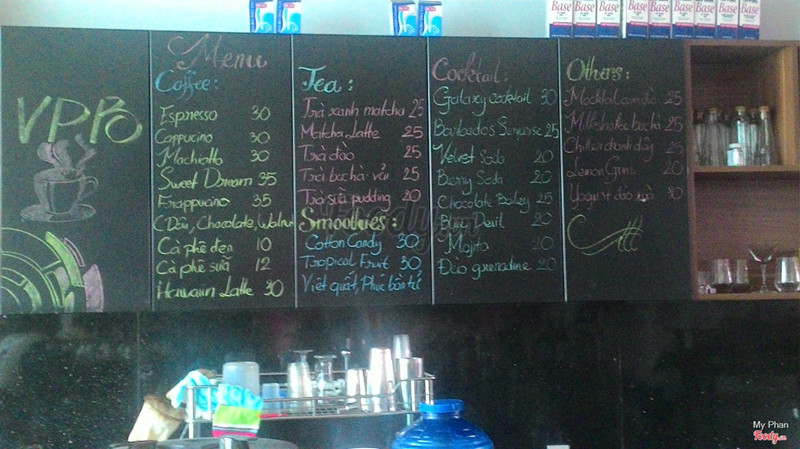 Base Base Base Base Base Base Base Base
VPPO
Menu
Coffee:
Espresso 30
Cappucino 30
Machiatto 30
Sweet Dream 35
Frappuccino 35
(Dâu, Chocolate, Walnut
Cà phê đen 10
Cà phê sữa 12
Hawaiin Latte 30
Tea:
Trà xanh matcha 25
Matcha Latte 25
Trà đào 25
Trà bạc hà vải 25
Trà sữa pudding 20
Smoothies:
Cotton Candy 30
Tropical Fruit 30
Việt quất, Phúc bồn tử
Cocktail:
Galaxy cocktail 30
Barbados Sunrise 25
Velvet Soda 20
Berry Soda 20
Chocolate Bailey 25
Blue Devil 20
Mojito 20
Đào grenadine 20
Others:
Mocktail cam đào 25
Milkshake bạc hà 25
chanh dây 25
Lemon Gum 20
Yogurt đào 20
My Phan
Foody.vn